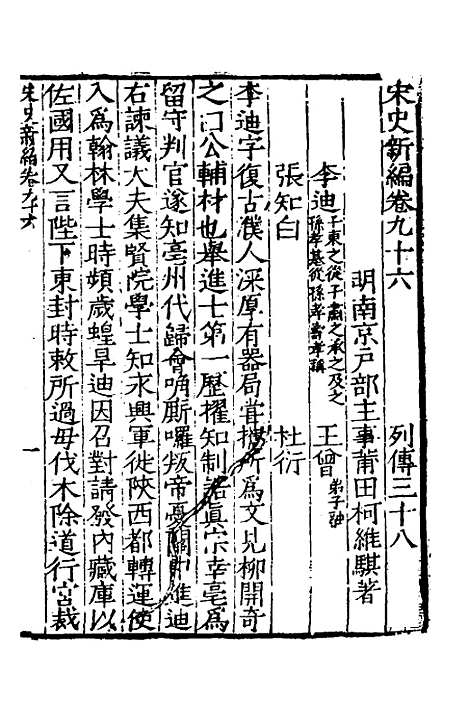 宋史新編卷九十六　列傳三十八
明南京戶部主事莆田柯維騏著
李迪 子東之從子肅之承之及之 孫孝基從孫孝壽孝稱　王曾 弟子融
張知白　杜衍
李迪字復古濮人深厚有器局嘗攜所爲文見柳開奇
之曰公輔材也舉進士第一歷擢知制誥眞宗幸亳爲
留守判官遂知亳州代歸會唃厮囉叛帝憂關中進迪
右諫議大夫集賢院學士知永興軍徙陝西都轉運使
入爲翰林學士時頻歲蝗旱迪因召對請發內藏庫以
佐國用又言陛下東封時敕所過毋伐木除道行宮裁
宋史新編卷九十六　一